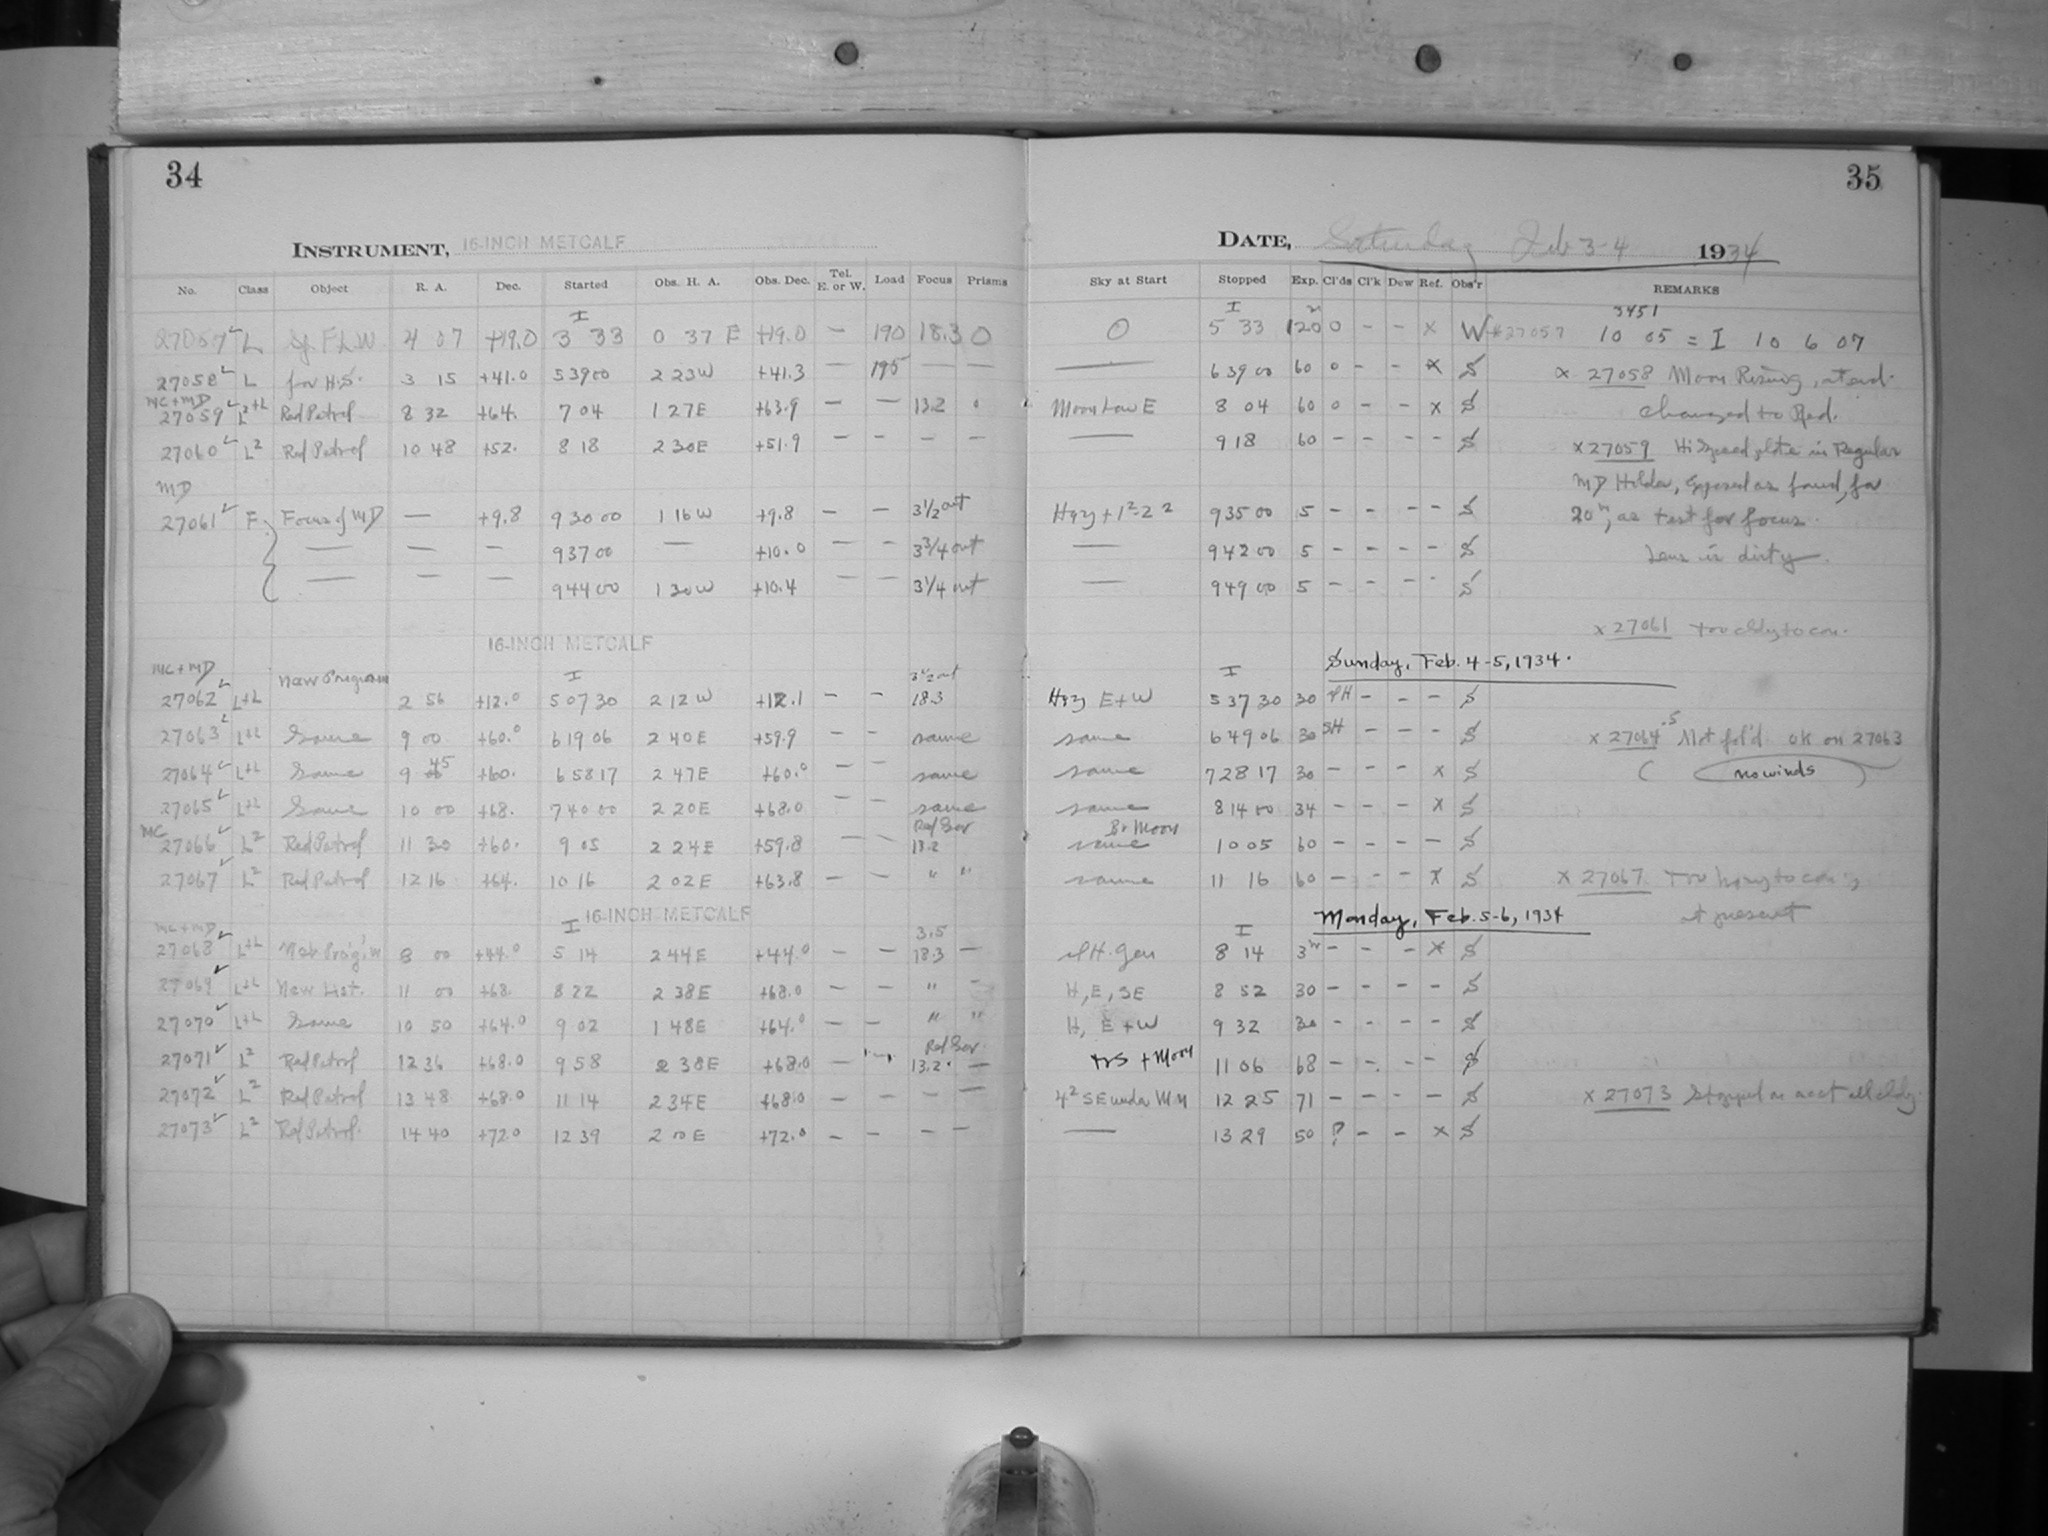 34
INSTRUMENT, 16-INCH METCALF
No. Class Object R. A. Dec. Started Obs. H. A. Obs. Dec. Tel. E. or W. Load Focus Prisms
I
27057 L Sp. F L W 4 07 +19.0 3 33 0 37 E +19.0 — 190 18.3 0
27058 L for H.S. 3 15 +41.0 5 39 00 2 23 W +41.3 — 195 — —
MC + MD
27059 L²+L Red Patrol 8 32 +64. 7 04 1 27 E +63.9 — — 13.2 0
27060 L² Red Patrol 10 48 +52. 8 18 2 30 E +51.9 — — — —
MD
27061 F Focus of MD — +9.8 9 30 00 1 16 W +9.8 — — 3 1/2 out
— — — 9 37 00 — +10.0 — — 3 3/4 out
— — — 9 44 00 1 30 W +10.4 — — 3 1/4 out
16-INCH METCALF
MC + MD New Program I 3 1/2 out
27062 L+L 2 56 +12.0 5 07 30 2 12 W +12.1 — — 18.3
27063 L+L Same 9 00 +60.0 6 19 06 2 40 E +59.9 — — same
27064 L+L Same 9 45 +60. 6 58 17 2 47 E +60.0 — — same
27065 L+L Same 10 00 +68. 7 40 00 2 20 E +68.0 — — same
MC
27066 L² Red Patrol 11 30 +60. 9 05 2 24 E +59.8 — — 13.2
27067 L² Red Patrol 12 16 +64. 10 16 2 02 E +63.8 — — " "
16-INCH METCALF
MC + MD I 3.5
27068 L+L 8 00 +44.0 5 14 2 44 E +44.0 — — 18.3 —
27069 L+L New List. 11 00 +68. 8 22 2 38 E +68.0 — — " —
27070 L+L Same 10 50 +64.0 9 02 1 48 E +64.0 — — " "
27071 L² Red Patrol 12 36 +68.0 9 58 2 38 E +68.0 — 13.2 —
27072 L² Red Patrol 13 48 +68.0 11 14 2 34 E +68.0 — — — —
27073 L² Red Patrol. 14 40 +72.0 12 39 2 00 E +72.0 — — — —
35
DATE, Saturday Feb 3-4 1934
Sky at Start Stopped Exp. Cl'ds Cl'k Dew Ref. Obs'r REMARKS
I 3451
0 5 33 120 0 — — x W #27057 10 05 = I 10 6 07
— 6 39 00 60 0 — — x S x 27058 Moon Rising, at end.
Moon Low E 8 04 60 0 — — x S changed to Red.
— 9 18 60 — — — — S x 27059 Hi Speed plate in Regular
MD Holder, exposed as found, for
Hazy + 1²-2² 9 35 00 5 — — — — S 20m, as test for focus.
— 9 42 00 5 — — — — S Lens is dirty.
— 9 49 00 5 — — — — S
x 27061 Too cldy to con.
I Sunday, Feb. 4-5, 1934.
Hazy E + W 5 37 30 30 — — — S
same 6 49 06 30 SH — — — S x 27064 .5 Not fol'd ok on 27063
same 7 28 17 30 — — — x S ( no winds )
same 8 14 00 34 — — — x S
Br Moon
same 10 05 60 — — — — S
same 11 16 60 — — — x S x 27067 Too hazy to con'g
at present
I Monday, Feb. 5-6, 1934
8 14 — — — x S
H, E, SE 8 52 30 — — — — S
H, E + W 9 32 30 — — — — S
+ Moon 11 06 68 — — — — S
4² SE under Mn 12 25 71 — — — — S x 27073 Stopped on acct all cldy.
— 13 29 50 ? — — x S